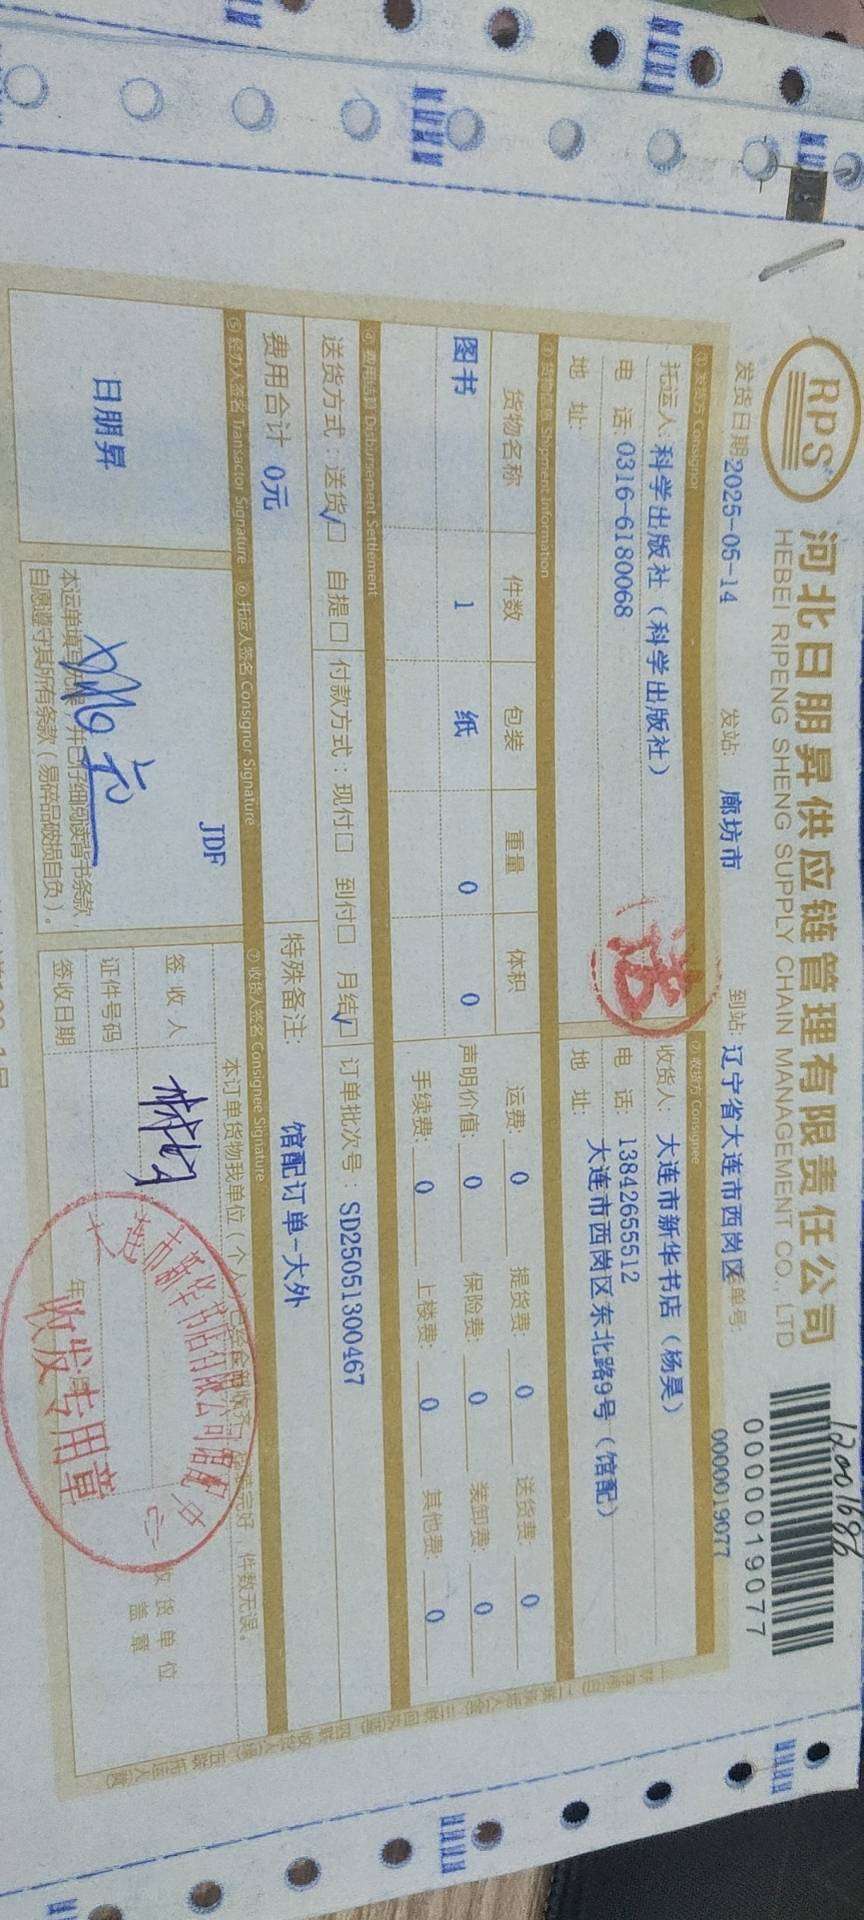 RPS
河北日朋昇供应链管理有限责任公司
HEBEI RIPENG SHENG SUPPLY CHAIN MANAGEMENT CO., LTD
12001686
0000019077
发货日期 2025-05-14 发站: 廊坊市 到站: 辽宁省大连市西岗区 单号: 0000019077
① 发货方 Consignor ② 收货方 Consignee
托运人: 科学出版社(科学出版社) 收货人: 大连市新华书店(杨昊)
电 话: 0316-6180068 电 话: 13842655512
地 址: 地 址: 大连市西岗区东北路9号(馆配)
送
③ 货物信息 Shipment Information
货物名称 件数 包装 重量 体积 运费: 0 提货费: 0 送货费: 0
图书 1 纸 0 0 声明价值: 0 保险费: 0 装卸费: 0
手续费: 0 上楼费: 0 其他费: 0
④ 费用结算 Disbursement Settlement
送货方式:送货☑ 自提□ 付款方式:现付□ 到付□ 月结☑ 订单批次号: SD25051300467
费用合计 0元 特殊备注: 馆配订单-大外
⑤ 经办人签名 Transactor Signature ⑥ 托运人签名 Consignor Signature ⑦ 收货人签名 Consignee Signature
日朋昇
JDF
本运单填写无误,并已仔细阅读背书条款,
自愿遵守其所有条款(易碎品破损自负)。
本订单货物我单位(个人)已经全部收齐,包装完好,件数无误。
签收人
证件号码
签收日期 年 月
收货单位
盖章
大连市新华书店有限公司馆配中心
收发专用章